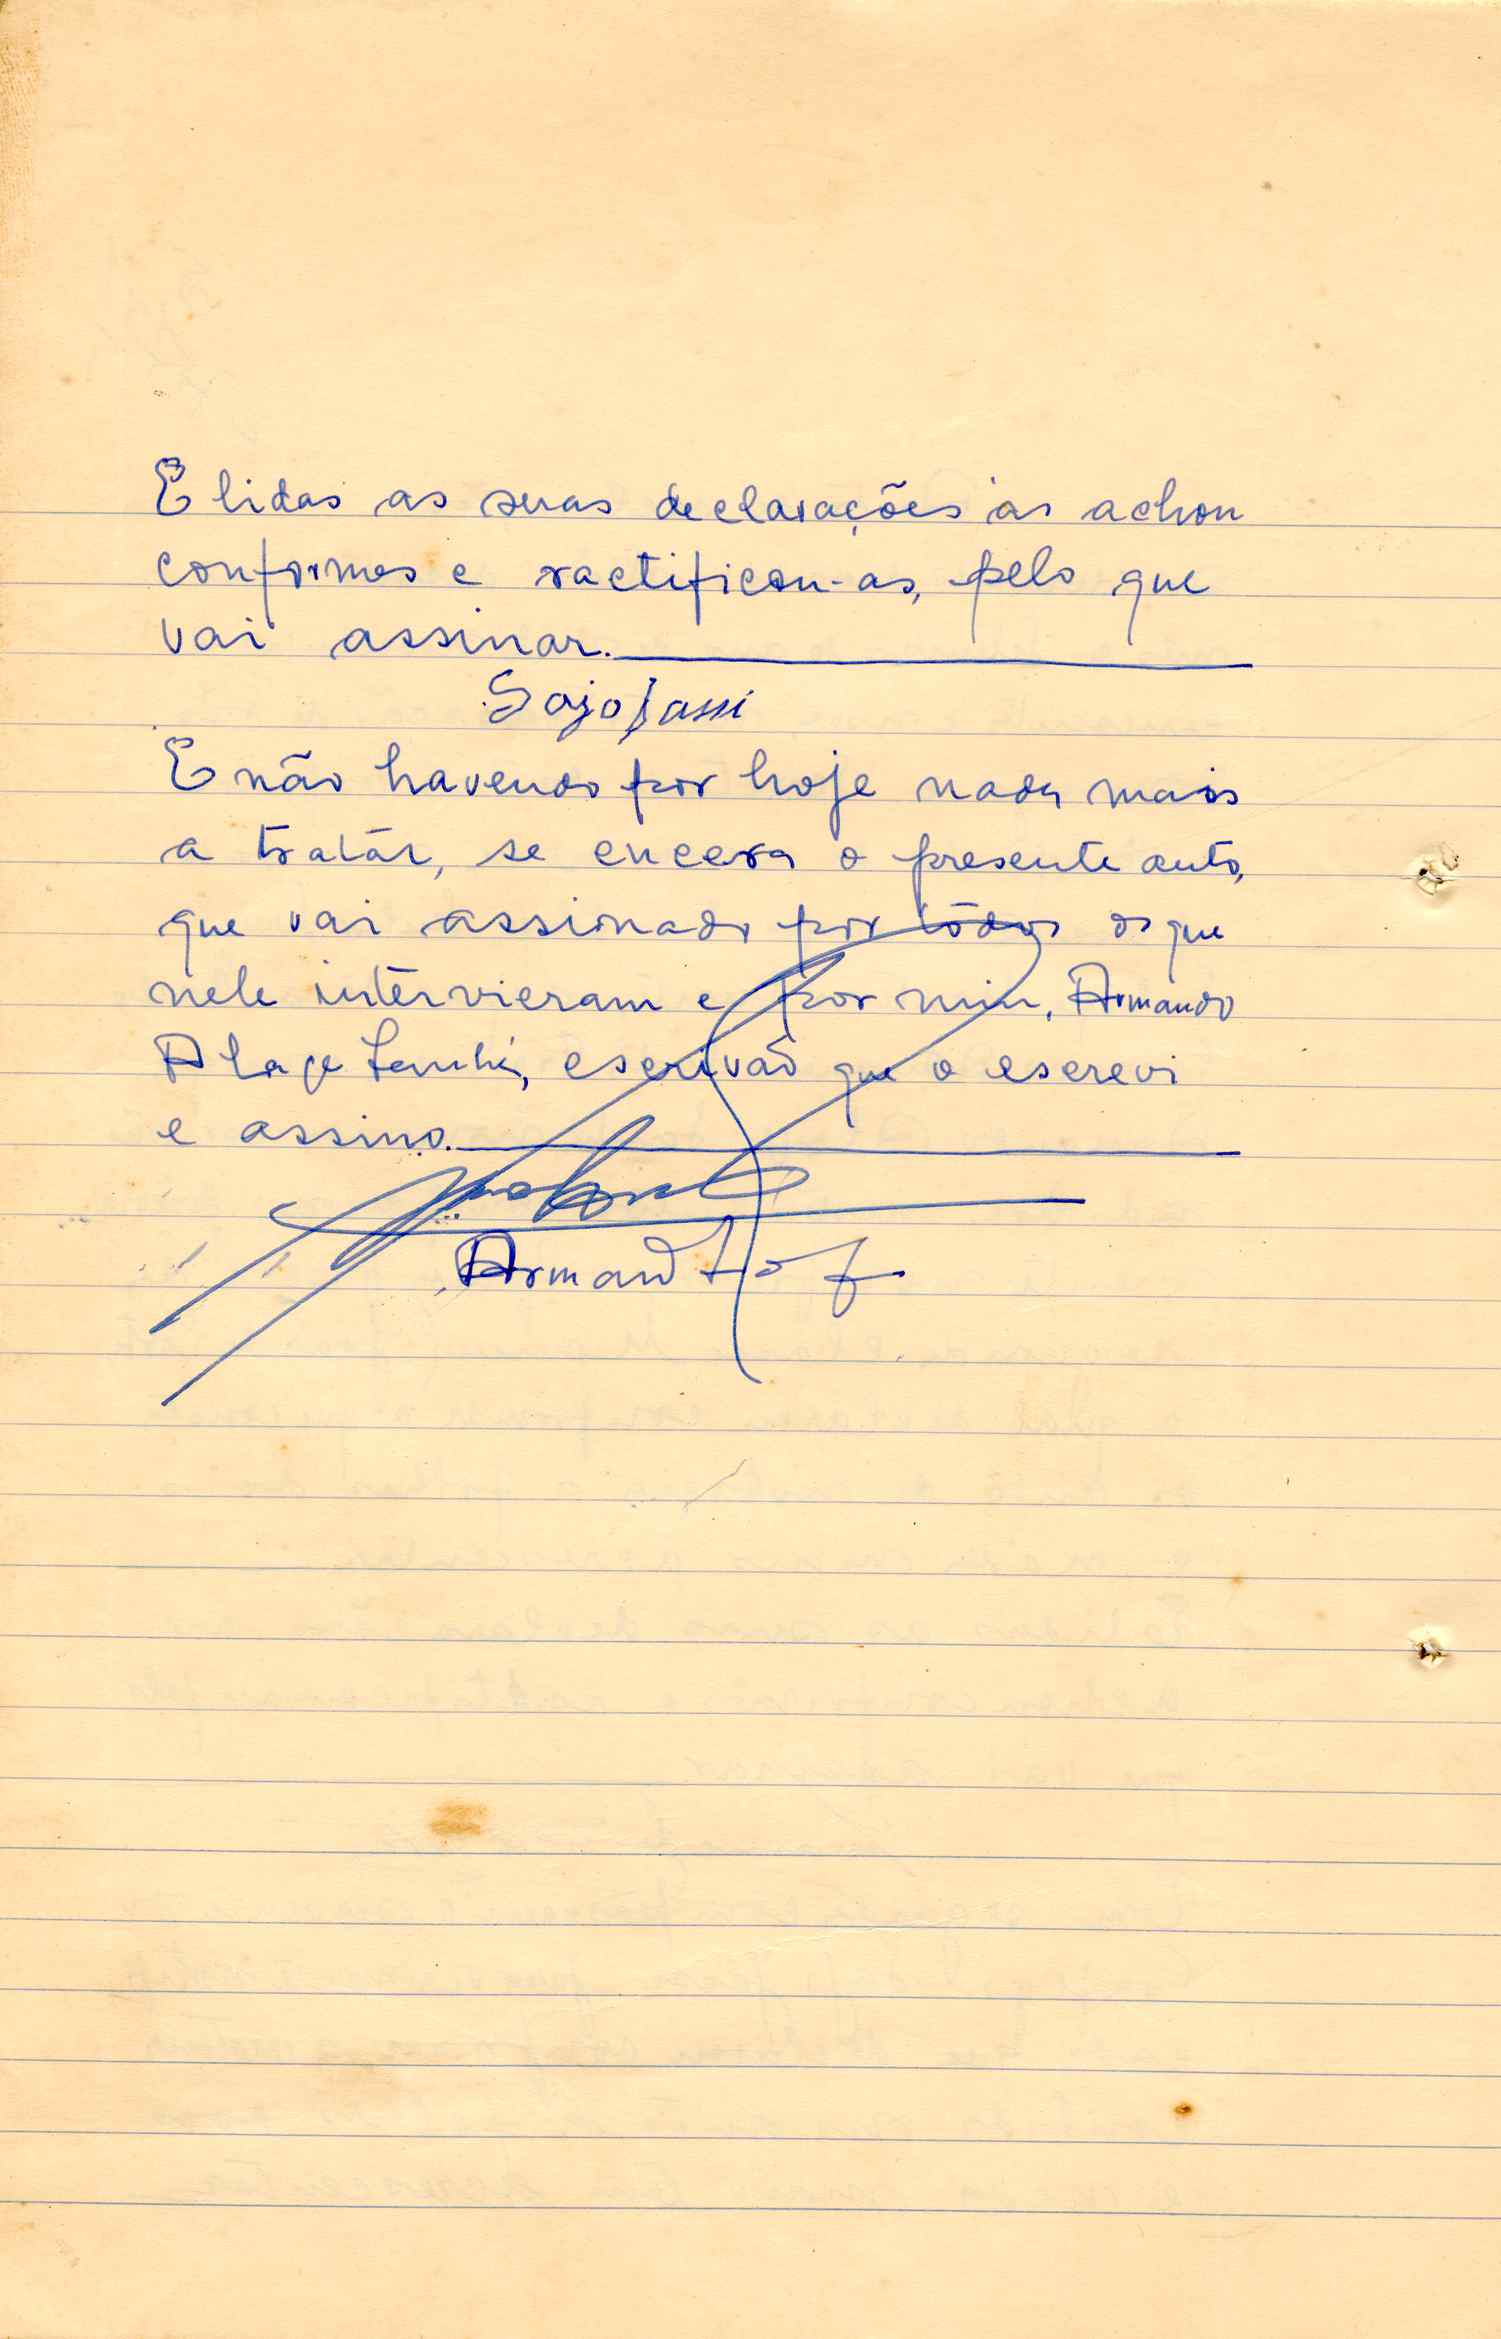 E lidas as suas declarações as achou
conformes e ractificou-as, pelo que
vai assinar.
Sajo Jassi
E não havendo por hoje nada mais
a tratár, se encerra o presente auto,
que vai assinado por todos os que
nele intervieram e por mim, Armando
escrivão que o escrevi
e assino.
Armand